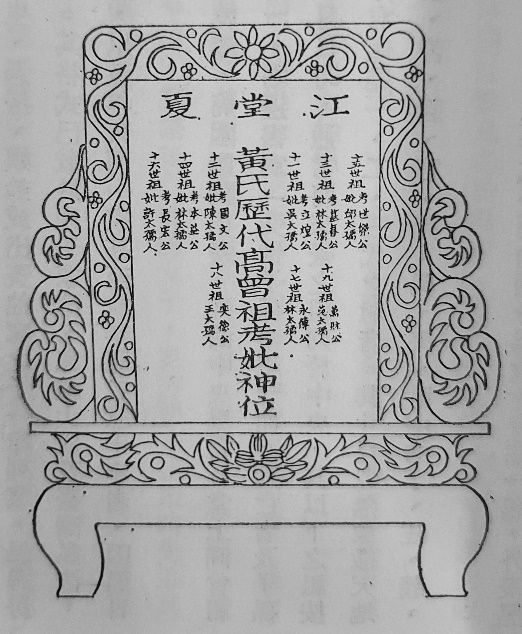 江堂夏
十五世祖
考世傑公
妣邱太孺人
十三世祖
考公
妣林太孺人
十一世祖
考立煌公
妣吳太孺人
十九世祖
萬財公
范太孺人
十七世祖
永傳公
林太孺人
黃氏歷代高曾祖考妣神位
十二世祖
考國文公
妣陳太孺人
十八世祖
奕傑公
王太孺人
十四世祖
考永益公
妣林太孺人
十六世祖
考長宏公
妣許太孺人